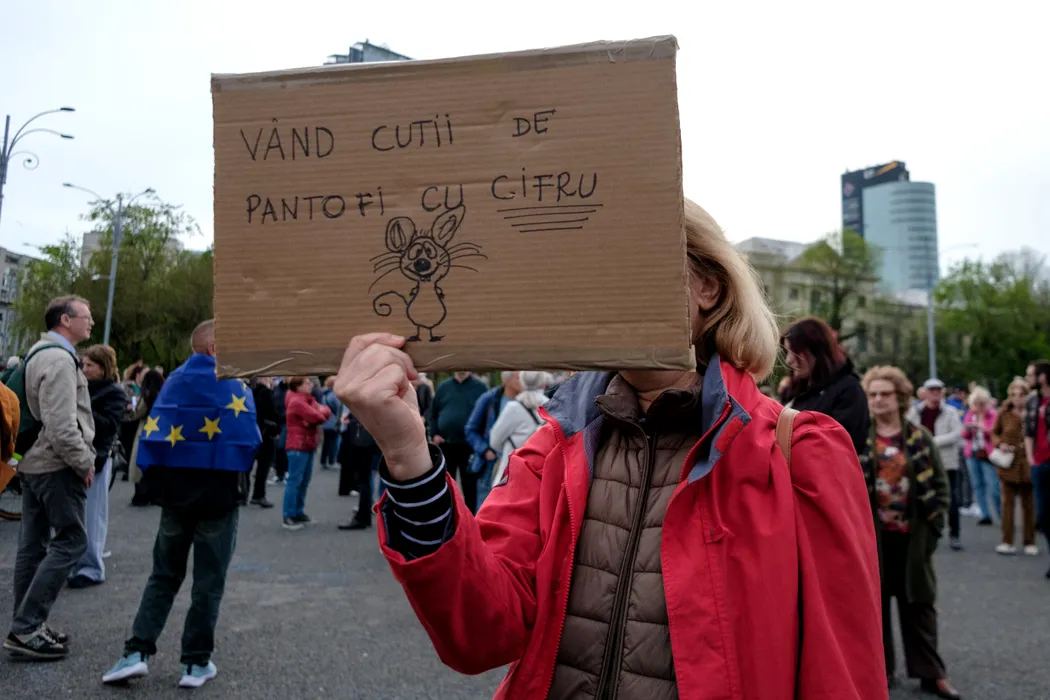 VÂND CUTII DE
PANTOFI CU CIFRU